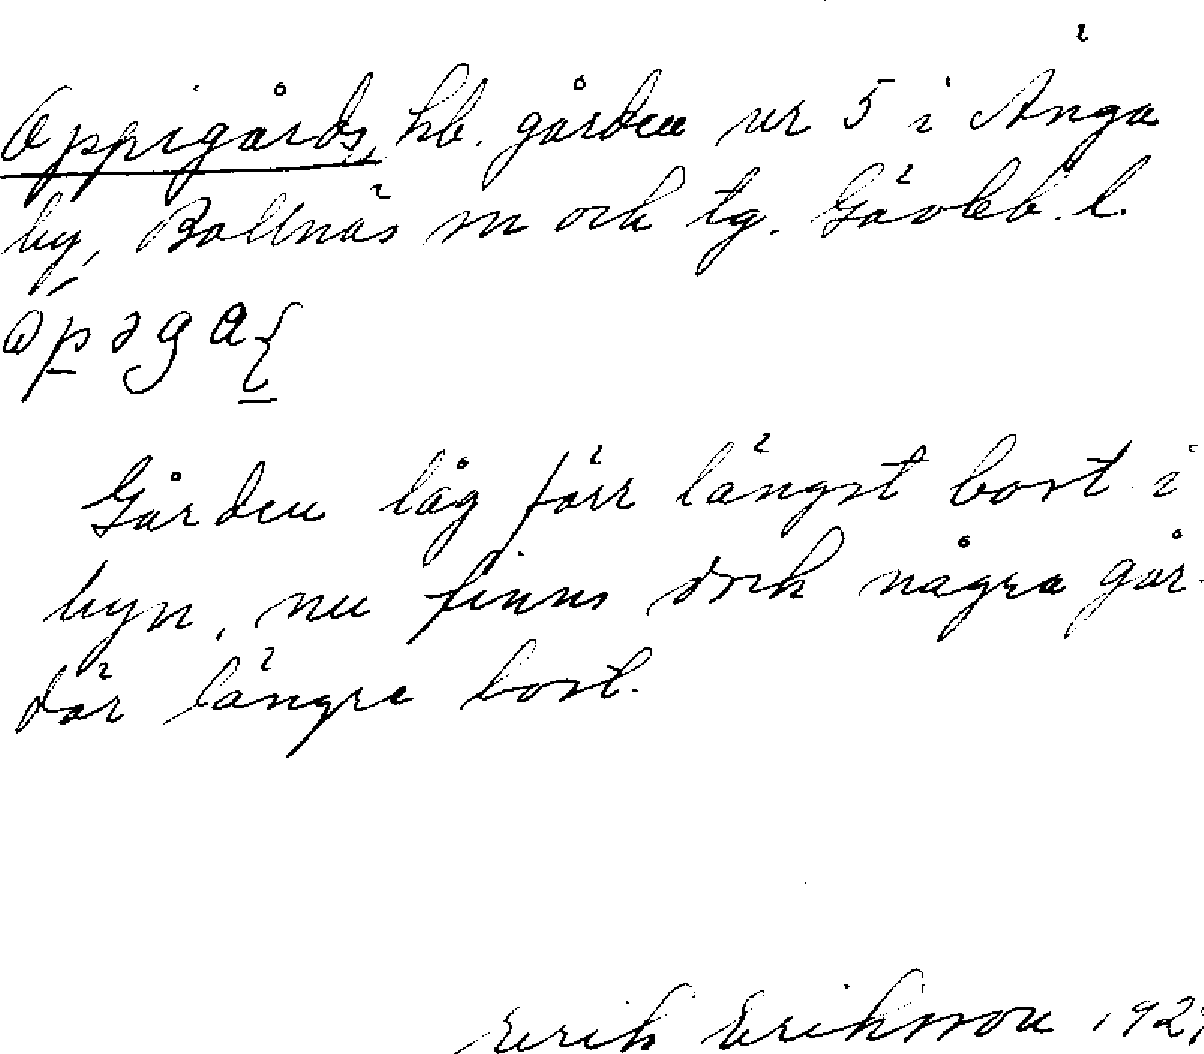 Oppigårds, hb. gården nr 5 i Änga
by, Bollnäs sn och tg. Gävleb. l.
Gården låg förr längst bort i
byn, nu finns dock några går-
dar längre bort.
Erik Eriksson 192